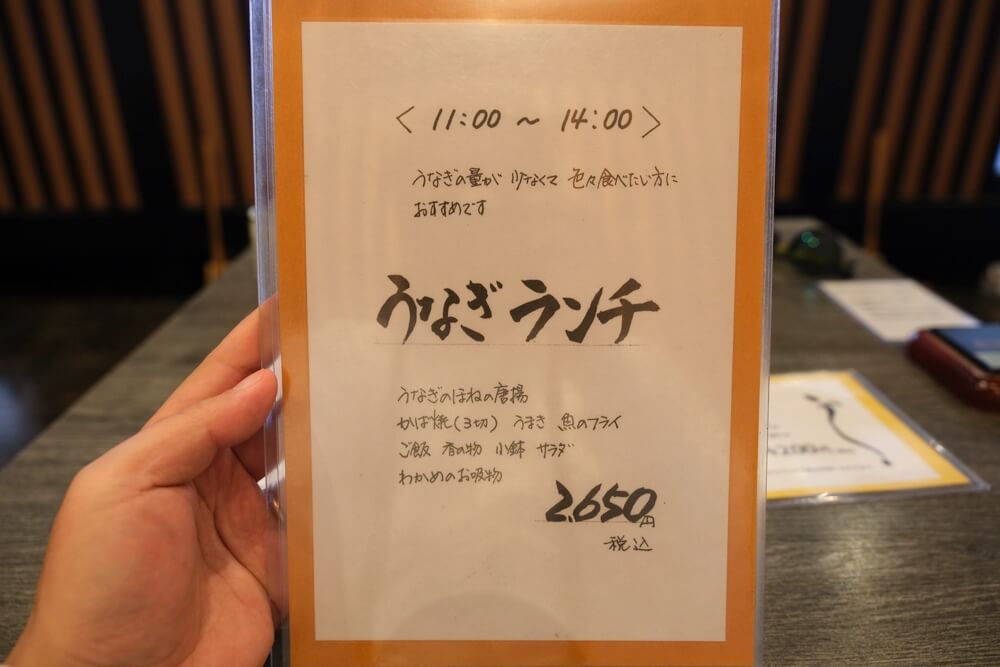 〈 11:00 ～ 14:00 〉
うなぎの量が 少なくて 色々食べたい方に
おすすめです
うなぎランチ
うなぎのほねの唐揚
かば焼(3切) うまき 魚のフライ
ご飯 香の物 小鉢 サラダ
わかめのお吸物
2,650円
税込